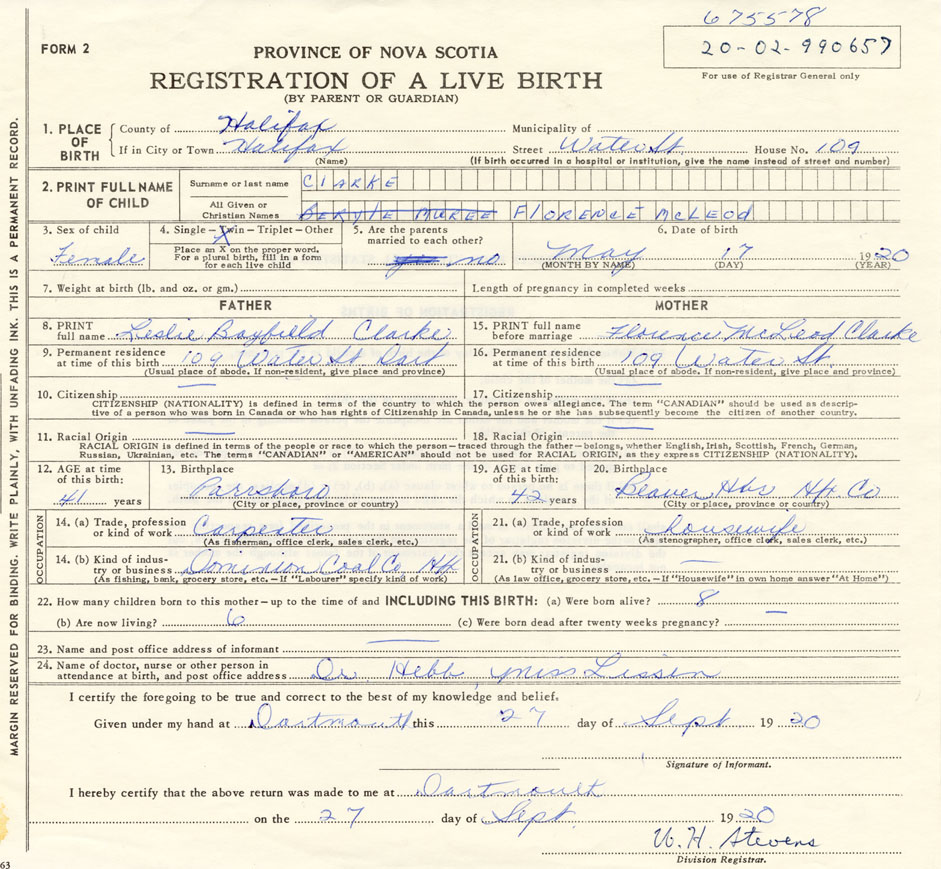 675578
20-02-990657
For use of Registrar General only
FORM 2
PROVINCE OF NOVA SCOTIA
REGISTRATION OF A LIVE BIRTH
(BY PARENT OR GUARDIAN)
1. PLACE OF BIRTH County of Halifax Municipality of
If in City or Town Halifax Street Water St House No. 109
(Name) (If birth occurred in a hospital or institution, give the name instead of street and number)
2. PRINT FULL NAME OF CHILD Surname or last name CLARKE
All Given or Christian Names BERYLE MUREE FLORENCE McLEOD
3. Sex of child 4. Single – Twin – Triplet – Other 5. Are the parents married to each other? 6. Date of birth
Female X Place an X on the proper word. For a plural birth, fill in a form for each live child yes no May 17 1920
(MONTH BY NAME) (DAY) (YEAR)
7. Weight at birth (lb. and oz. or gm.) Length of pregnancy in completed weeks.
FATHER MOTHER
8. PRINT full name Leslie Bayfield Clarke 15. PRINT full name before marriage Florence McLeod Clarke
9. Permanent residence at time of this birth 109 Water St Dart 16. Permanent residence at time of this birth 109 Water St
(Usual place of abode. If non-resident, give place and province) (Usual place of abode. If non-resident, give place and province)
10. Citizenship 17. Citizenship
CITIZENSHIP (NATIONALITY) is defined in terms of the country to which the person owes allegiance. The term "CANADIAN" should be used as descrip-
tive of a person who was born in Canada or who has rights of Citizenship in Canada, unless he or she has subsequently become the citizen of another country.
11. Racial Origin 18. Racial Origin
RACIAL ORIGIN is defined in terms of the people or race to which the person – traced through the father – belongs, whether English, Irish, Scottish, French, German,
Russian, Ukrainian, etc. The terms "CANADIAN" or "AMERICAN" should not be used for RACIAL ORIGIN, as they express CITIZENSHIP (NATIONALITY).
12. AGE at time of this birth: 13. Birthplace 19. AGE at time of this birth: 20. Birthplace
41 years Parrsboro 42 years Beaver Hbr Hfx Co
(City or place, province or country) (City or place, province or country)
OCCUPATION 14. (a) Trade, profession or kind of work Carpester OCCUPATION 21. (a) Trade, profession or kind of work housewife
(As fisherman, office clerk, sales clerk, etc.) (As stenographer, office clerk, sales clerk, etc.)
14. (b) Kind of indus- try or business Dominion Coal Co. Hfx 21. (b) Kind of indus- try or business
(As fishing, bank, grocery store, etc. – If "Labourer" specify kind of work) (As law office, grocery store, etc. – If "Housewife" in own home answer "At Home")
22. How many children born to this mother – up to the time of and INCLUDING THIS BIRTH: (a) Were born alive? 8
(b) Are now living? 6 (c) Were born dead after twenty weeks pregnancy?
23. Name and post office address of informant
24. Name of doctor, nurse or other person in attendance at birth, and post office address Dr. Hebb, Miss Lissen
I certify the foregoing to be true and correct to the best of my knowledge and belief.
Given under my hand at Dartmouth this 27 day of Sept 1920
Signature of Informant.
I hereby certify that the above return was made to me at Dartmouth
on the 27 day of Sept. 1920
W. H. Stevens
Division Registrar.
MARGIN RESERVED FOR BINDING. WRITE PLAINLY, WITH UNFADING INK. THIS IS A PERMANENT RECORD.
63